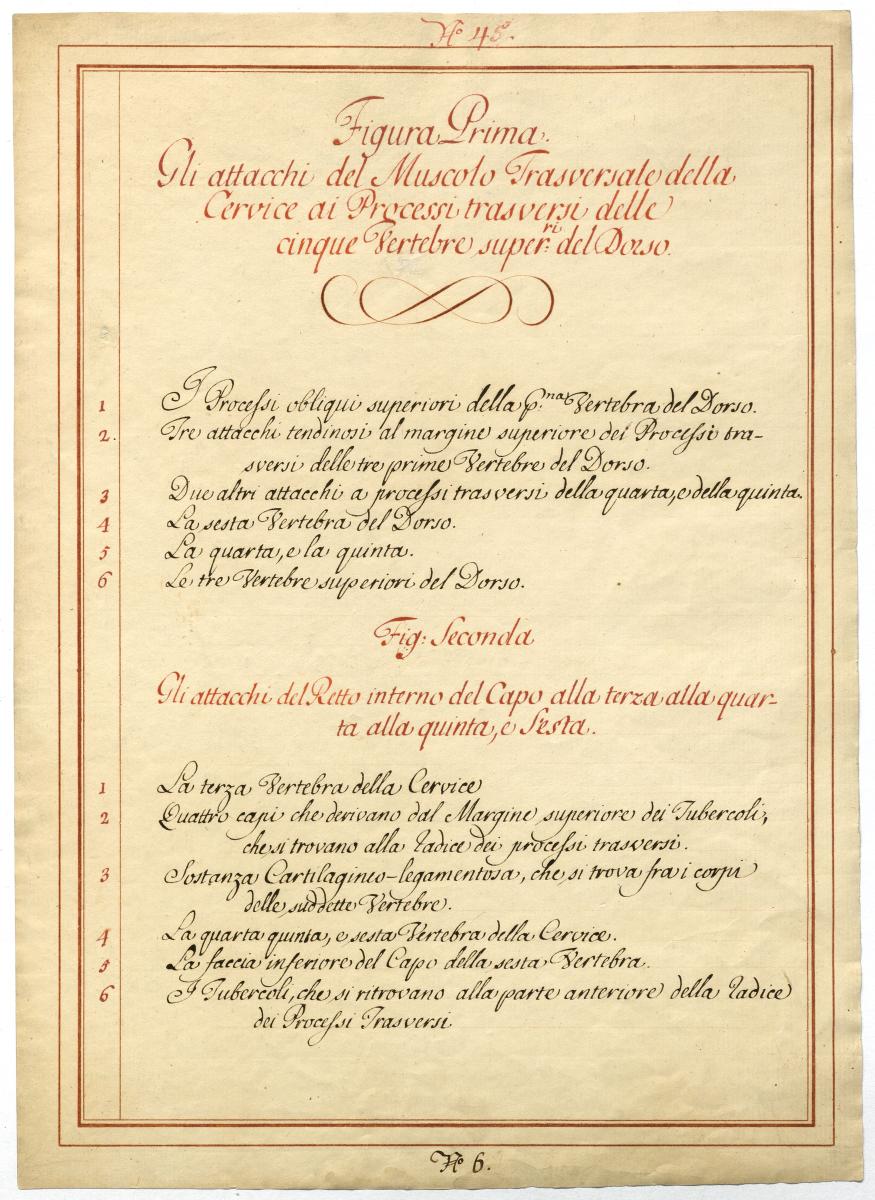 No 45.
Figura Prima.
Gli attacchi del Muscolo Trasversale della
Cervice ai Processi trasversi delle
cinque Vertebre super:ri del Dorso.
1 I Processi obliqui superiori della p:ma Vertebra del Dorso.
2. Tre attacchi tendinosi al margine superiore dei Processi tra-
sversi delle tre prime Vertebre del Dorso.
3 Due altri attacchi a processi trasversi della quarta, e della quinta.
4 La sesta Vertebra del Dorso.
5 La quarta, e la quinta.
6 Le tre Vertebre superiori del Dorso.
Fig: Seconda
Gli attacchi del Retto interno del Capo alla terza alla quar-
ta alla quinta, e Sesta.
1 La terza Vertebra della Cervice
2 Quattro capi che derivano dal Margine superiore dei Tubercoli,
che si trovano alla radice dei processi trasversi.
3 Sostanza Cartilagineo-legamentosa, che si trova fra i corpi
delle suddette Vertebre.
4 La quarta quinta, e sesta Vertebra della Cervice.
5 La faccia inferiore del Capo della sesta Vertebra.
6 I Tubercoli, che si ritrovano alla parte anteriore della radice
dei Processi Trasversi
No 6.